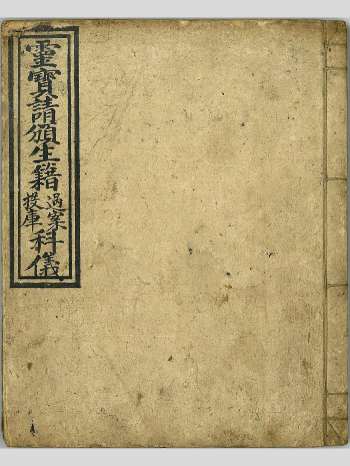 靈寶請頒生籍過案投庫科儀